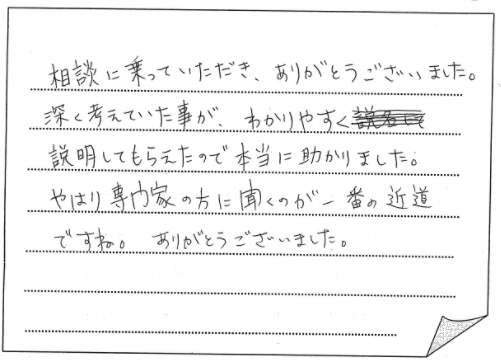 相談に乗っていただき、ありがとうございました。
深く考えていた事が、わかりやすく
説明してもらえたので本当に助かりました。
やはり専門家の方に聞くのが一番の近道
ですね。 ありがとうございました。